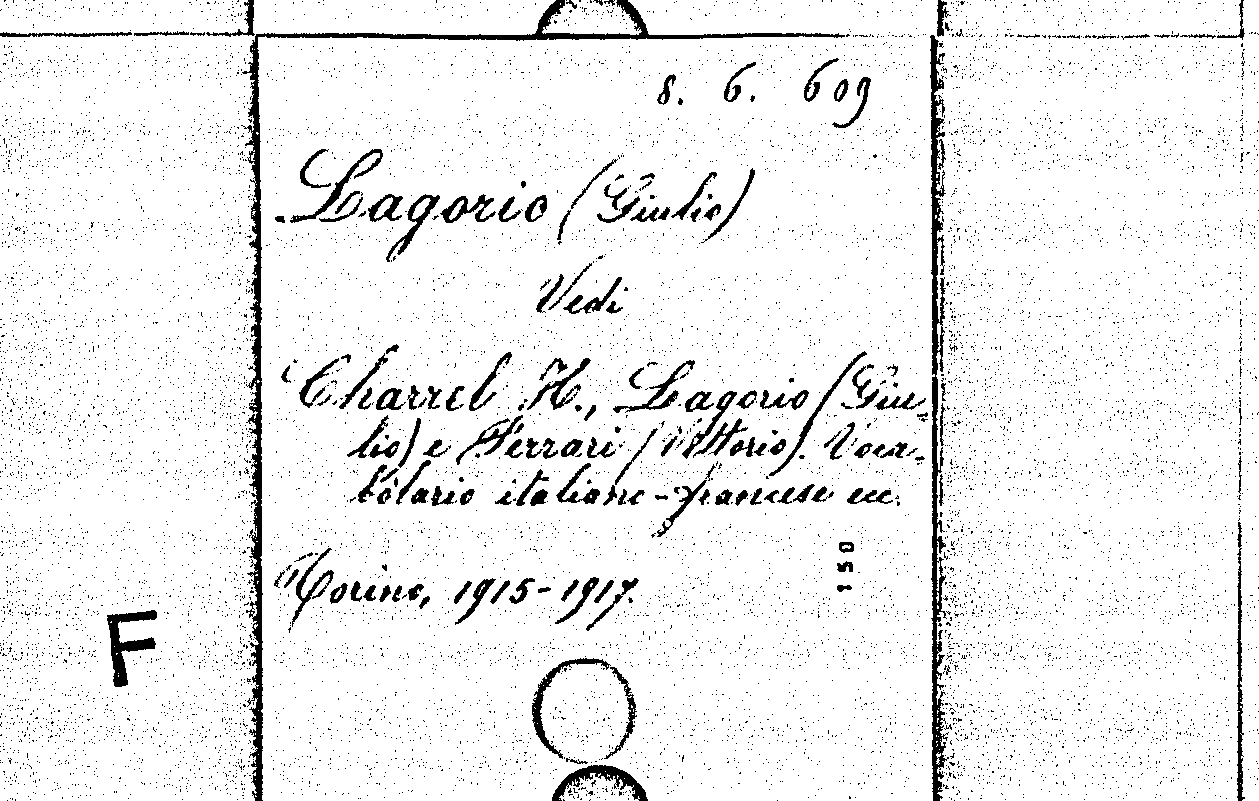 8. 6. 609
Lagorio (Giulio)
Vedi
Charrel H., Lagorio (Giu-
lio) e Ferrari (Vittorio). Voca-
bolario italiano-francese ecc.
Torino, 1915-1917.
150
F